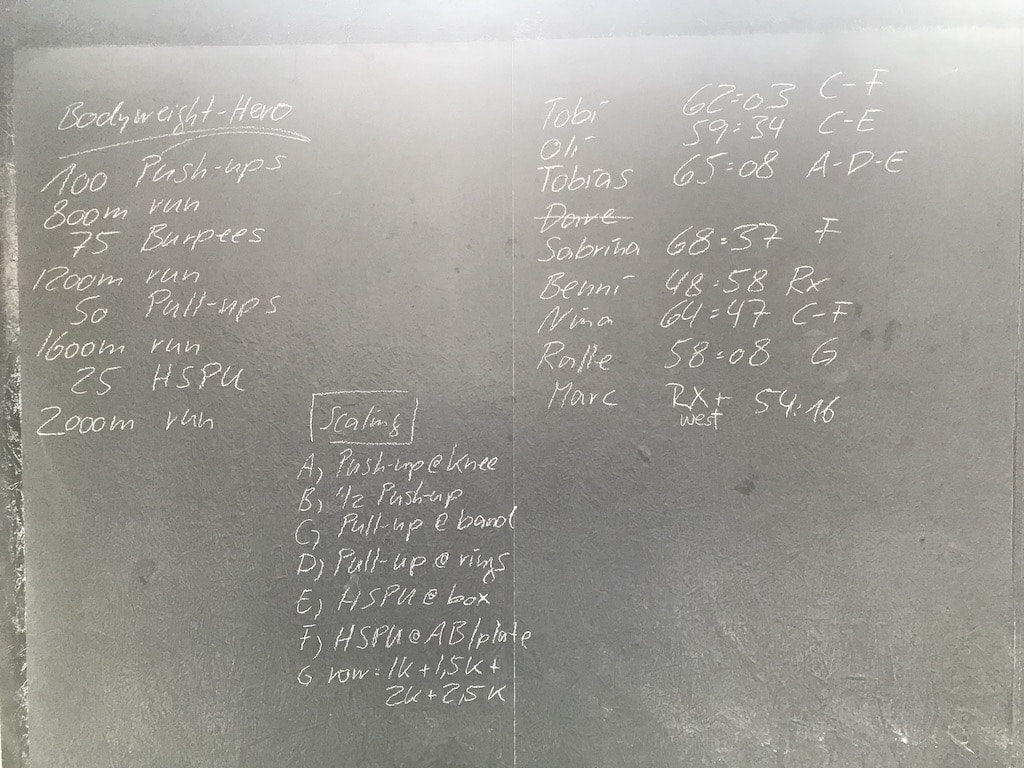 Bodyweight-Hero
100 Push-ups
800m run
75 Burpees
1200m run
50 Pull-ups
1600m run
25 HSPU
2000m run
Scaling
A) Push-up@knee
B) 1/2 Push-up
C) Pull-up @ band
D) Pull-up @ rings
E) HSPU @ box
F) HSPU @ AB/plate
G row = 1k + 1,5k +
2k + 2,5k
Tobi 62:03 C-F
Oli 59:34 C-E
Tobias 65:08 A-D-E
Dave
Sabrina 68:37 F
Benni 48:58 Rx
Nina 64:47 C-F
Ralle 58:08 G
Marc RX+ 54:16
west